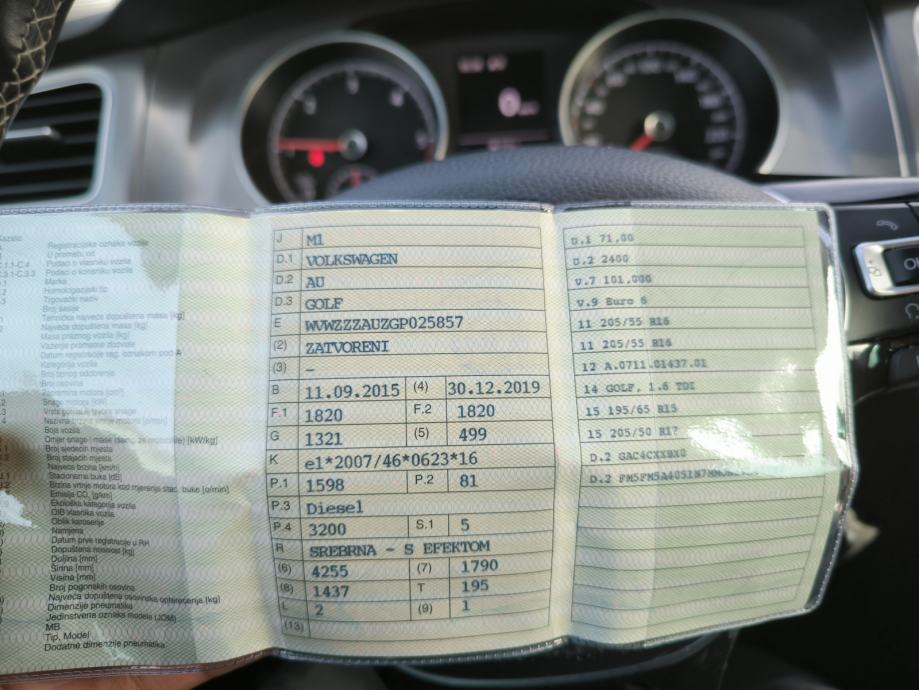 Registracijska oznaka vozila
U prometu od
C.1.1-C.4 Podaci o vlasniku vozila
C.3.1-C.3.3 Podaci o korisniku vozila
Marka
Homologacijski tip
Trgovački naziv
Broj šasije
Tehnička najveća dopuštena masa [kg]
Najveća dopuštena masa [kg]
Masa praznog vozila [kg]
Datum registracije reg. oznakom pod A
Kategorija vozila
Broj osovina
Snaga motora [kW]
Boja vozila
Broj sjedećih mjesta
Broj stajaćih mjesta
Najveća brzina [km/h]
Stacionarna buka [dB]
Brzina vrtnje motora kod mjerenja stac. buke [o/min]
Emisija CO₂ [g/km]
Ekološka kategorija vozila
OIB vlasnika vozila
Oblik karoserije
Namjena
Datum prve registracije u RH
Dopuštena nosivost [kg]
Duljina [mm]
Širina [mm]
Visina [mm]
Broj pogonskih osovina
Najveća dopuštena osovinska opterećenja [kg]
Dimenzije pneumatika
Jedinstvena oznaka modela (JOM)
MB
Tip, Model
Dodatne dimenzije pneumatika
J M1
D.1 VOLKSWAGEN
D.2 AU
D.3 GOLF
E WVWZZZAUZGP025857
(2) ZATVORENI
(3) –
B 11.09.2015 (4) 30.12.2019
F.1 1820 F.2 1820
G 1321 (5) 499
K e1*2007/46*0623*16
P.1 1598 P.2 81
P.3 Diesel
P.4 3200 S.1 5
R SREBRNA - S EFEKTOM
(6) 4255 (7) 1790
(8) 1437 T 195
L 2 (9) 1
(13)
U.1 71,00
U.2 2400
V.7 101,000
V.9 Euro 6
11 205/55 R16
11 205/55 R16
12 A.0711.01437.01
14 GOLF, 1.6 TDI
15 195/65 R15
15 205/50 R17
D.2 GAC4CXXBX0
D.2